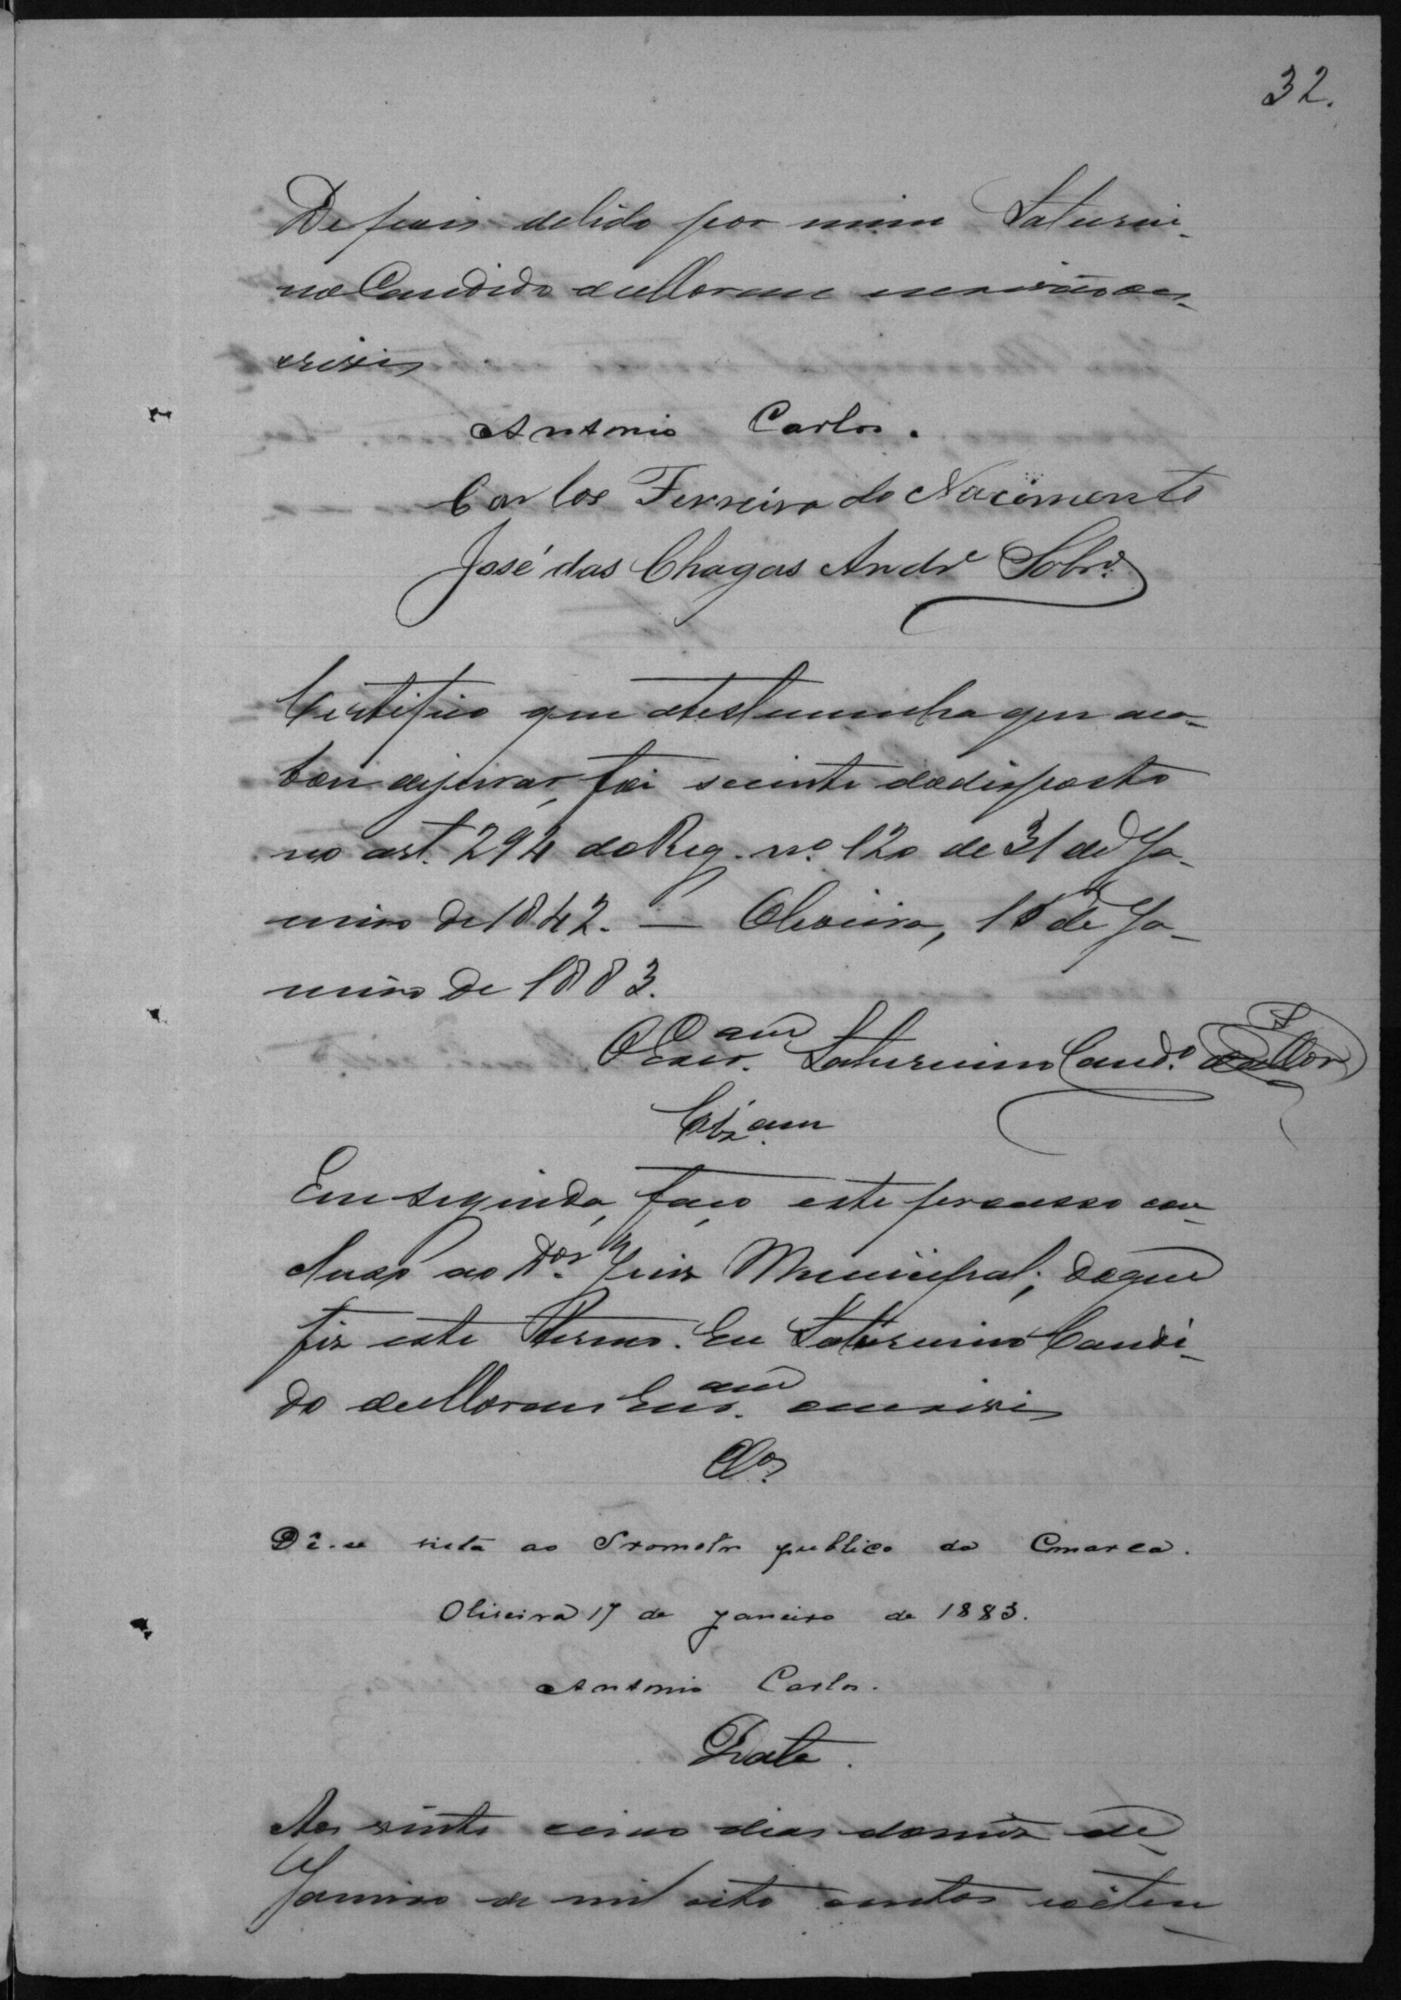 32.
Depois de lido por mim Saturni-
no Candido de Moraes escrivão es-
crivi
Antonio Carlos.
Carlos Ferreira do Nacimento
José das Chagas Andre Sobro
Certifico que atestemunha que aca-
bou dejurar, foi sciente dodisposto
no art. 294 do Reg. no. 120 de 31 de Ja-
neiro de 1842. — Oliveira, de Ja-
neiro de 1883.
O Escram. Saturnino Cando. de Mor
Clzam
Em seguida, faço este processo con-
cluso ao Dor. Juiz Municipal; doque
fiz este Termo. Eu Saturnino Candi-
do de Moraes Escam. escrivi
Clos.
Dê-se vista ao Promotor publico da Comarca.
Oliveira 17 de janeiro de 1883.
Antonio Carlos.
Data.
Aos vinte cinco dias domez de
Janeiro de mil oito centos eoiten